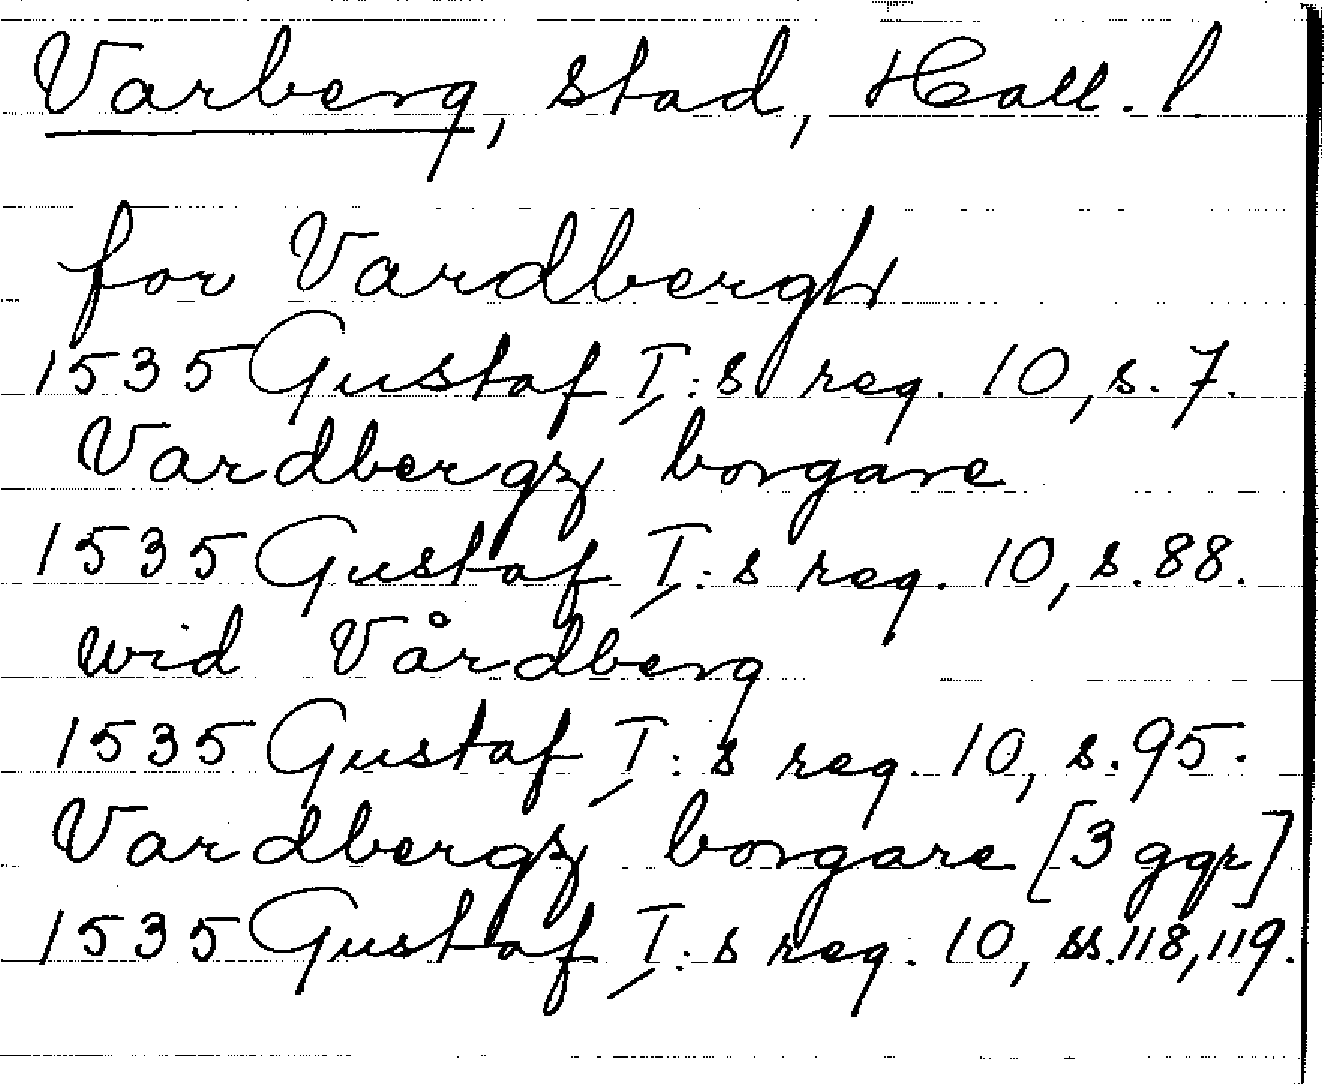 Varberg, stad, Hall. l
for Vardbergh
1535 Gustaf I:s reg. 10, s. 7.
Vardbergz borgare
1535 Gustaf I:s reg. 10, s. 88.
wid Vårdberg
1535 Gustaf I:s reg. 10, s. 95.
Vardbergz borgare [3 ggr]
1535 Gustaf I:s reg. 10, ss. 118, 119.